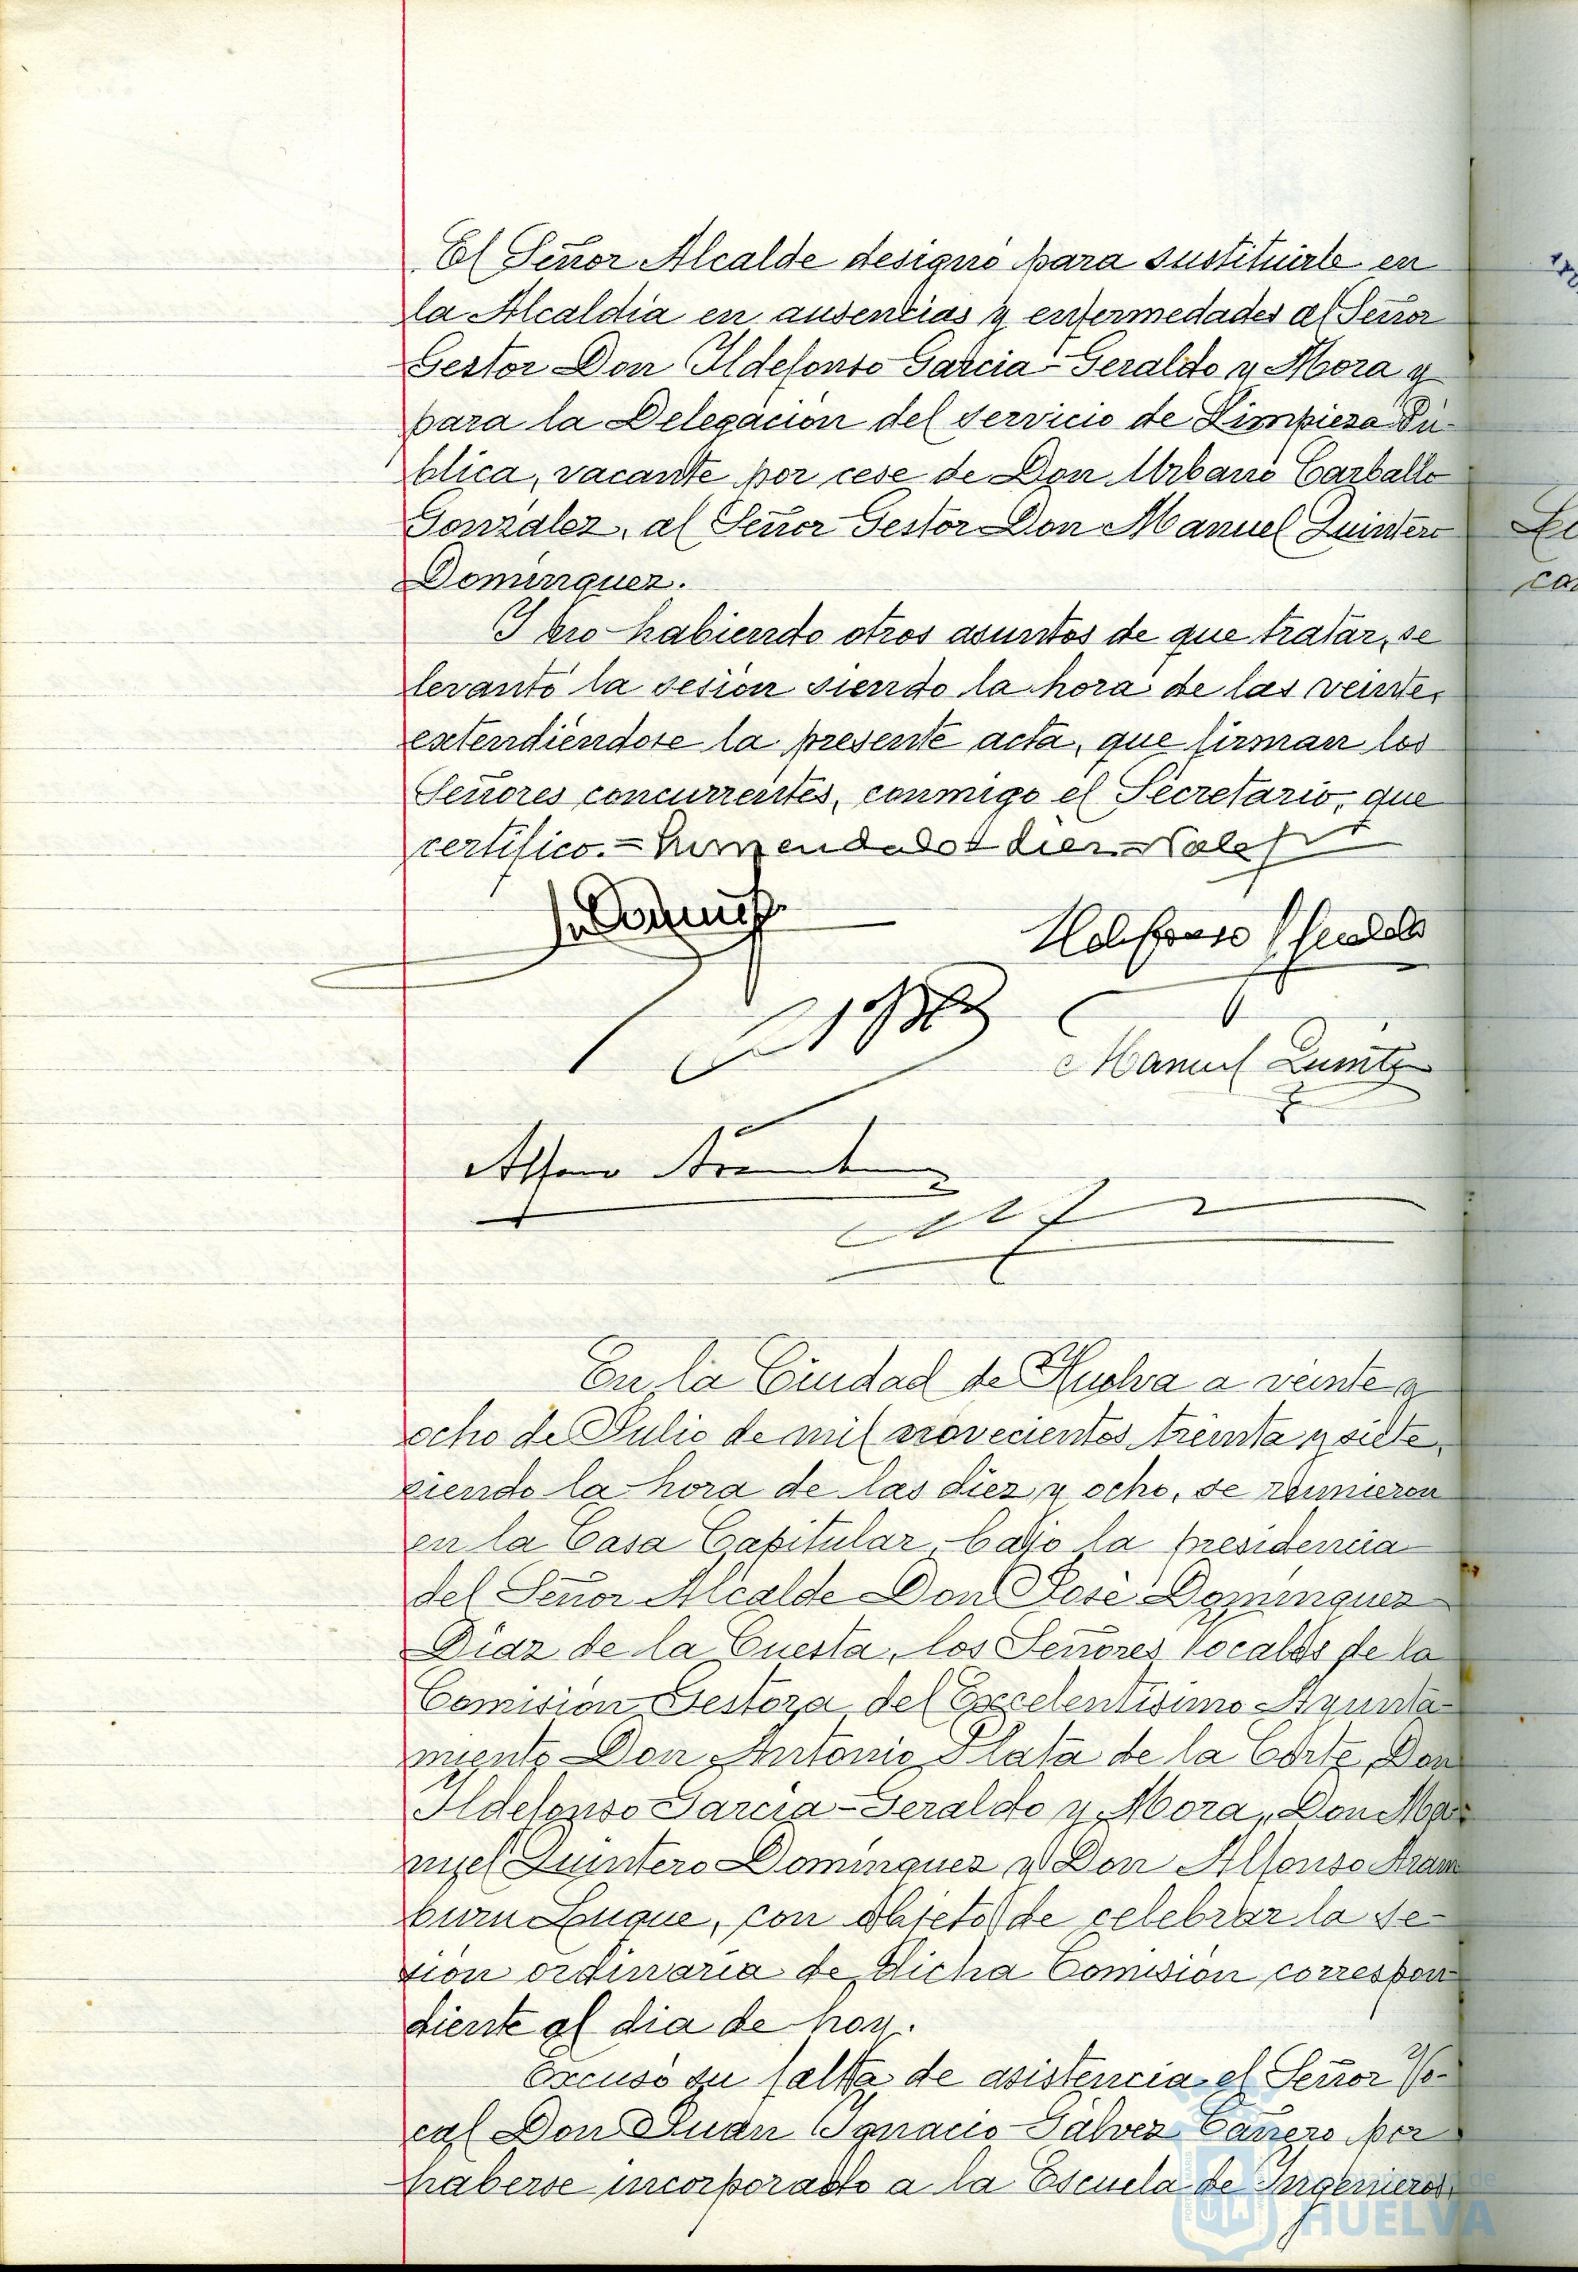 El Señor Alcalde designó para sustituirle en
la Alcaldia en ausencias y enfermedades al Señor
Gestor Don Ildefonso Garcia-Geraldo y Mora y
para la Delegación del servicio de Limpieza Pú-
blica, vacante por cese de Don Urbano Carballo
Gonzalez, al Señor Gestor Don Manuel Quintero
Dominguez.
Y no habiendo otros asuntos de que tratar, se
levantó la sesión siendo la hora de las veinte,
extendiéndose la presente acta, que firman los
Señores concurrentes, conmigo el Secretario, que
certifico.=
Manuel
En la Ciudad de Huelva a veinte y
ocho de Julio de mil novecientos treinta y siete,
siendo la hora de las diez y ocho, se reunieron
en la Casa Capitular, bajo la presidencia
del Señor Alcalde Don José Dominguez
Diaz de la Cuesta, los Señores Vocales de la
Comisión Gestora del Excelentísimo Ayunta-
miento Don Antonio Plata de la Corte, Don
Ildefonso Garcia-Geraldo y Mora, Don Ma-
nuel Quintero Dominguez y Don Alfonso Aram
buru Luque, con objeto de celebrar la se-
sión ordinaria de dicha Comisión correspon
diente al dia de hoy.
Excusó su falta de asistencia el Señor Vo-
cal Don Juan Ygnacio Gálvez Cañero por
haberse incorporado a la Escuela de Ingenieros
HUELVA